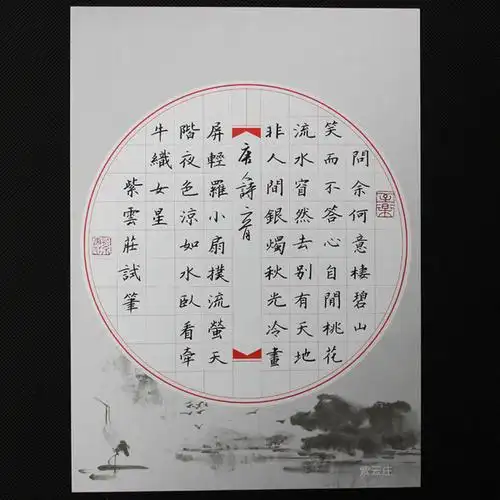 問余何意棲碧山
笑而不答心自閒桃花
流水窅然去別有天地
非人間銀燭秋光冷畫
唐人詩二首
屏輕羅小扇撲流螢天
階夜色涼如水臥看牽
牛織女星
紫雲莊試筆
紫云庄